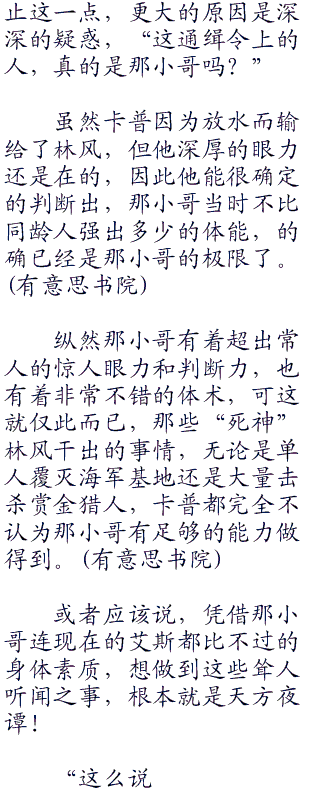 止这一点，更大的原因是深
深的疑惑，“这通缉令上的
人，真的是那小哥吗？”
虽然卡普因为放水而输
给了林风，但他深厚的眼力
还是在的，因此他能很确定
的判断出，那小哥当时不比
同龄人强出多少的体能，的
确已经是那小哥的极限了。
(有意思书院)
纵然那小哥有着超出常
人的惊人眼力和判断力，也
有着非常不错的体术，可这
就仅此而已，那些“死神”
林风干出的事情，无论是单
人覆灭海军基地还是大量击
杀赏金猎人，卡普都完全不
认为那小哥有足够的能力做
得到。(有意思书院)
或者应该说，凭借那小
哥连现在的艾斯都比不过的
身体素质，想做到这些耸人
听闻之事，根本就是天方夜
谭！
“这么说